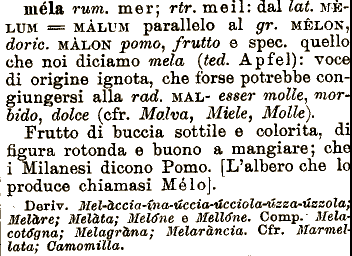 méla rum. mer; rtr. meil: dal lat. MĒ-
LUM = MĀLUM parallelo al gr. MÊLON,
doric. MÀLON pomo, frutto e spec. quello
che noi diciamo mela (ted. Apfel): voce
di origine ignota, che forse potrebbe con-
giungersi alla rad. MAL- esser molle, mor-
bido, dolce (cfr. Malva, Miele, Molle).
Frutto di buccia sottile e colorita, di
figura rotonda e buono a mangiare; che
i Milanesi dicono Pomo. [L'albero che lo
produce chiamasi Mélo].
Deriv. Mel-àccia-ína-úccia-úcciola-úzza-úzzola;
Melàre; Melàta; Melóne e Mellóne. Comp. Mela-
cotógna; Melagràna; Melarància. Cfr. Marmel-
lata; Camomilla.